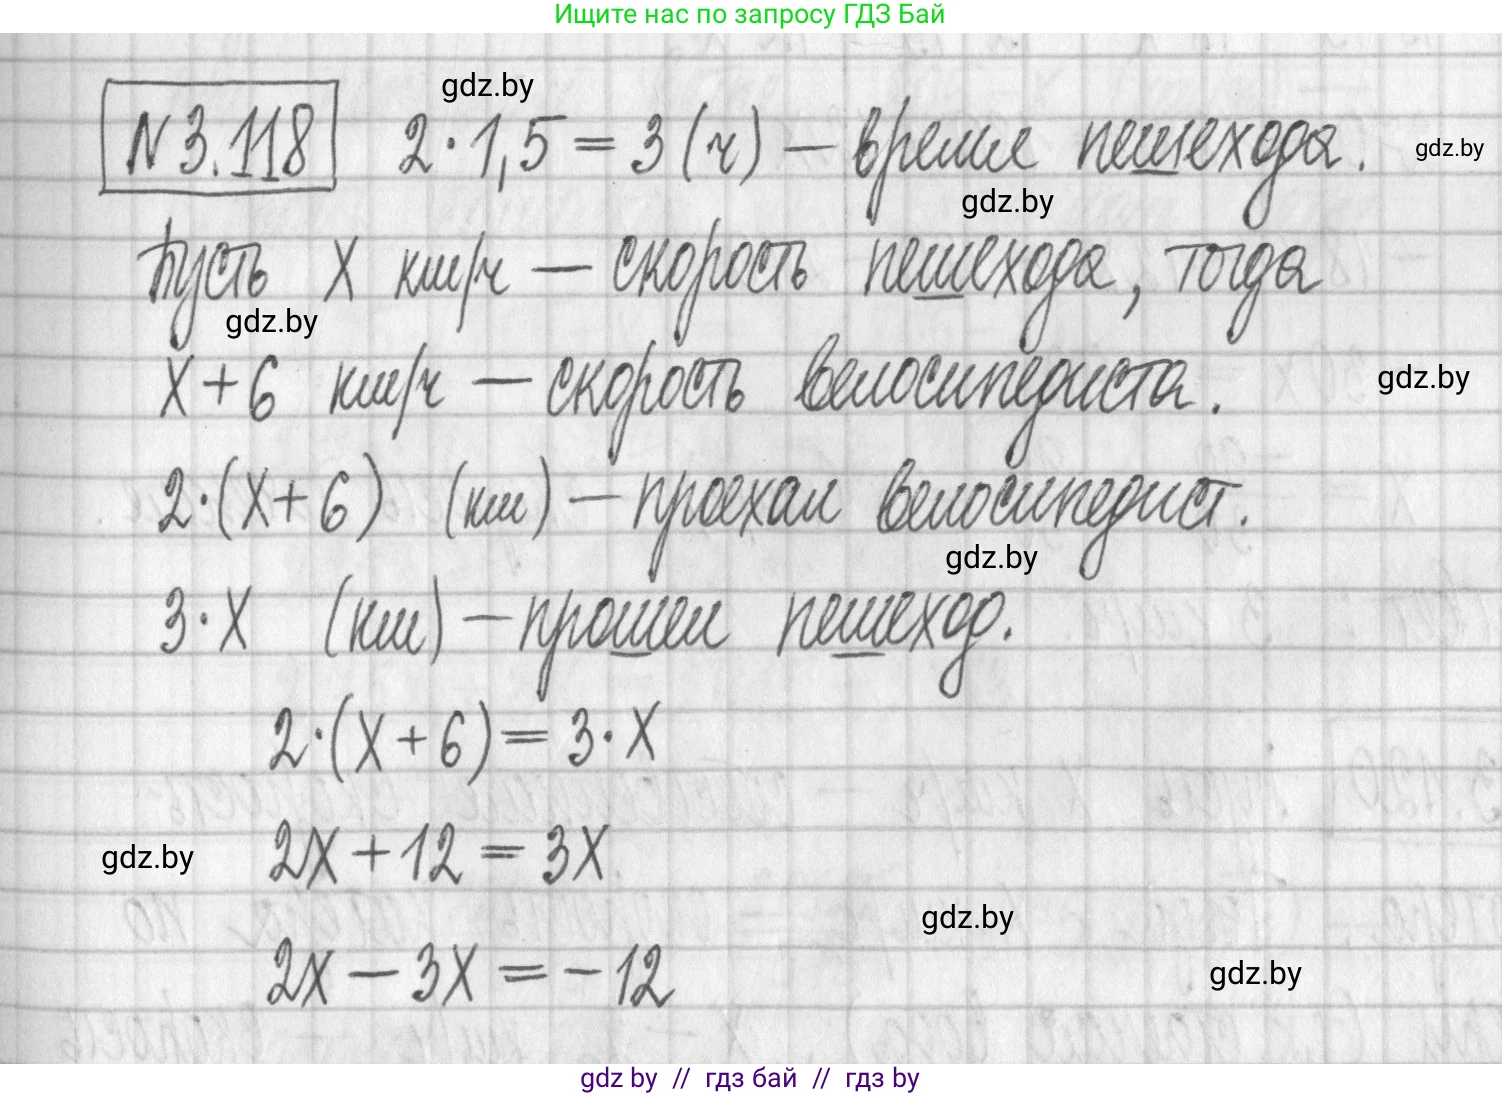 Ищите нас по запросу ГДЗ Бай
gdz.by
№ 3.118 2·1,5 = 3 (ч) — время пешехода.
gdz.by
gdz.by
Пусть х км/ч — скорость пешехода, тогда
gdz.by
х+6 км/ч — скорость велосипедиста.
gdz.by
2·(х+6) (км) — проехал велосипедист.
gdz.by
3·х (км) — прошел пешеход.
2·(х+6) = 3·х
2х + 12 = 3х
gdz.by
gdz.by
2х − 3х = −12
gdz.by
gdz by // гдз бай // гдз by